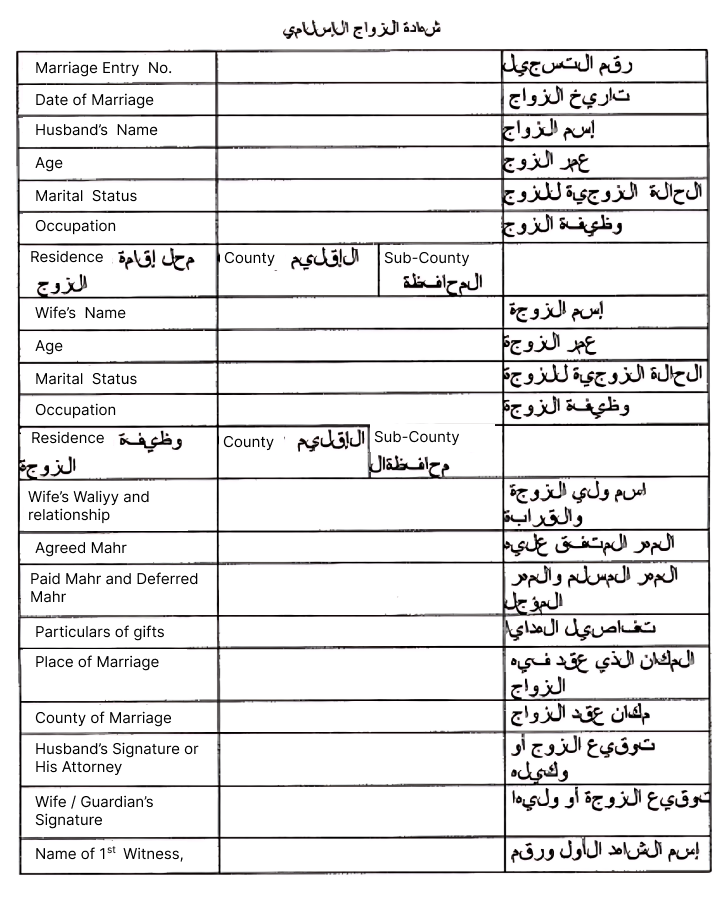 شهادة الزواج الإسلامي
Marriage Entry No. رقم التسجيل
Date of Marriage تاريخ الزواج
Husband's Name إسم الزواج
Age عمر الزوج
Marital Status الحالة الزوجية للزوج
Occupation وظيفة الزوج
Residence محل إقامة County الإقليم Sub-County
الزوج المحافظة
Wife's Name إسم الزوجة
Age عمر الزوجة
Marital Status الحالة الزوجية للزوجة
Occupation وظيفة الزوجة
Residence وظيفة County الإقليم Sub-County
الزوجة محافظةال
Wife's Waliyy and اسم ولي الزوجة
relationship والقرابة
Agreed Mahr المهر المتفق عليه
Paid Mahr and Deferred المهر المسلم والمهر
Mahr المؤجل
Particulars of gifts تفاصيل الهدايا
Place of Marriage المكان الذي عقد فيه
الزواج
County of Marriage مكان عقد الزواج
Husband's Signature or توقيع الزوج أو
His Attorney وكيله
Wife / Guardian's توقيع الزوجة أو وليها
Signature
Name of 1st Witness, إسم الشاهد الأول ورقم